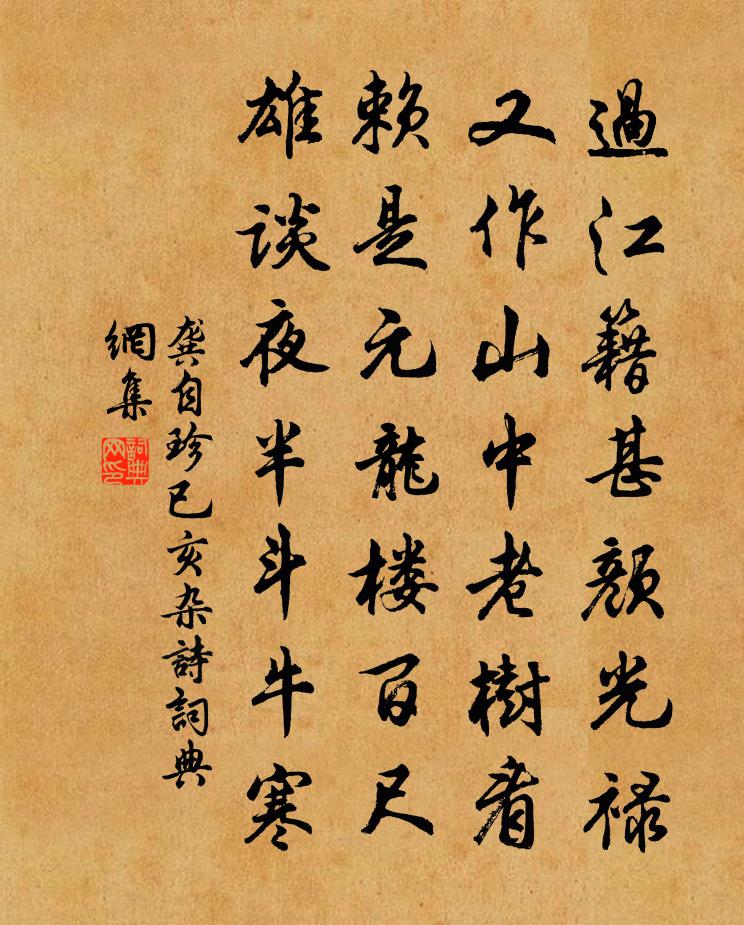 過江籍甚顔光禄
又作山中老樹看
賴是元龍楼百尺
雄谈夜半斗牛寒
龚自珍己亥杂詩詞典
網集
詞典网印